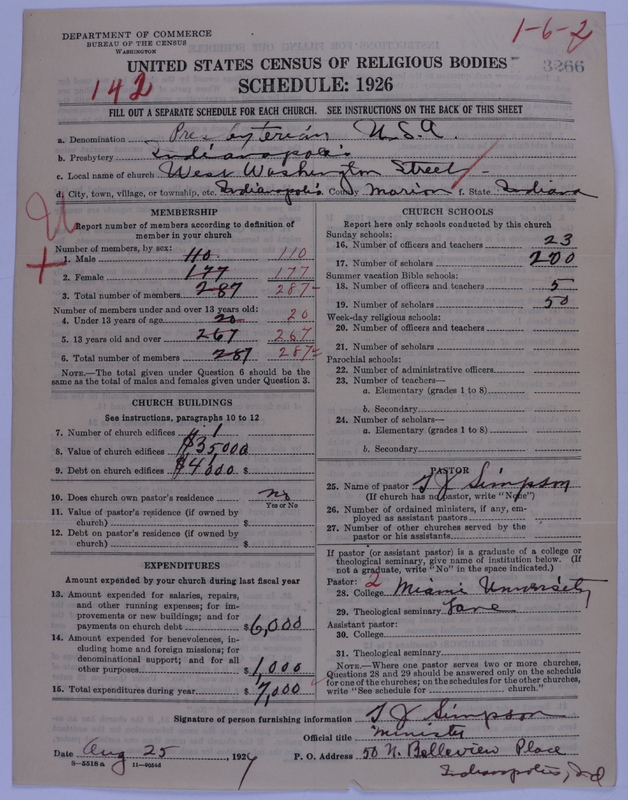 DEPARTMENT OF COMMERCE
BUREAU OF THE CENSUS
WASHINGTON
1-6-2
3266
UNITED STATES CENSUS OF RELIGIOUS BODIES
142
SCHEDULE: 1926
FILL OUT A SEPARATE SCHEDULE FOR EACH CHURCH. SEE INSTRUCTIONS ON THE BACK OF THIS SHEET
a. Denomination Presbyterian U.S.A.
b. Presbytery Indianapolis
c. Local name of church West Washington Street
d. City, town, village, or township, etc. Indianapolis County Marion f. State Indiana
MEMBERSHIP
Report number of members according to definition of member in your church
Number of members, by sex:
1. Male 110 110
2. Female 177 177
3. Total number of members 287 287
Number of members under and over 13 years old:
4. Under 13 years of age 20 20
5. 13 years old and over 267 267
6. Total number of members 287 287
NOTE.—The total given under Question 6 should be
same as the total of males and females given under Question 3.
CHURCH BUILDINGS
See instructions, paragraphs 10 to 12
7. Number of church edifices 1
8. Value of church edifices $35000
9. Debt on church edifices $4000 $
10. Does church own pastor's residence no
Yes or No
11. Value of pastor's residence (if owned by
church) $
12. Debt on pastor's residence (if owned by
church) $
EXPENDITURES
Amount expended by your church during last fiscal year
13. Amount expended for salaries, repairs,
and other running expenses; for im-
provements or new buildings; and for
payments on church debt $6,000
14. Amount expended for benevolences, in-
cluding home and foreign missions; for
denominational support; and for all
other purposes $1,000
15. Total expenditures during year $7,000
CHURCH SCHOOLS
Report here only schools conducted by this church
Sunday schools:
16. Number of officers and teachers 23
17. Number of scholars 200
Summer vacation Bible schools:
18. Number of officers and teachers 5
19. Number of scholars 50
Week-day religious schools:
20. Number of officers and teachers
21. Number of scholars
Parochial schools:
22. Number of administrative officers
23. Number of teachers—
a. Elementary (grades 1 to 8)
b. Secondary
24. Number of scholars—
a. Elementary (grades 1 to 8)
b. Secondary
PASTOR
25. Name of pastor T J Simpson
(If church has no pastor, write "None")
26. Number of ordained ministers, if any, em-
ployed as assistant pastors
27. Number of other churches served by the
pastor or his assistants
If pastor (or assistant pastor) is a graduate of a college or
theological seminary, give name of institution below. (If
not a graduate, write "No" in the space indicated.)
Pastor: 2
28. College Miami University
29. Theological seminary Lane
Assistant pastor:
30. College
31. Theological seminary
NOTE.—Where one pastor serves two or more churches,
Questions 28 and 29 should be answered only on the schedule
for one of the churches; on the schedules for the other churches,
write "See schedule for church."
Signature of person furnishing information T J Simpson
Official title Minister
Date Aug 25, 1927 P. O. Address 50 N. Belleview Place
Indianapolis, Ind
8-5518a 11-90646